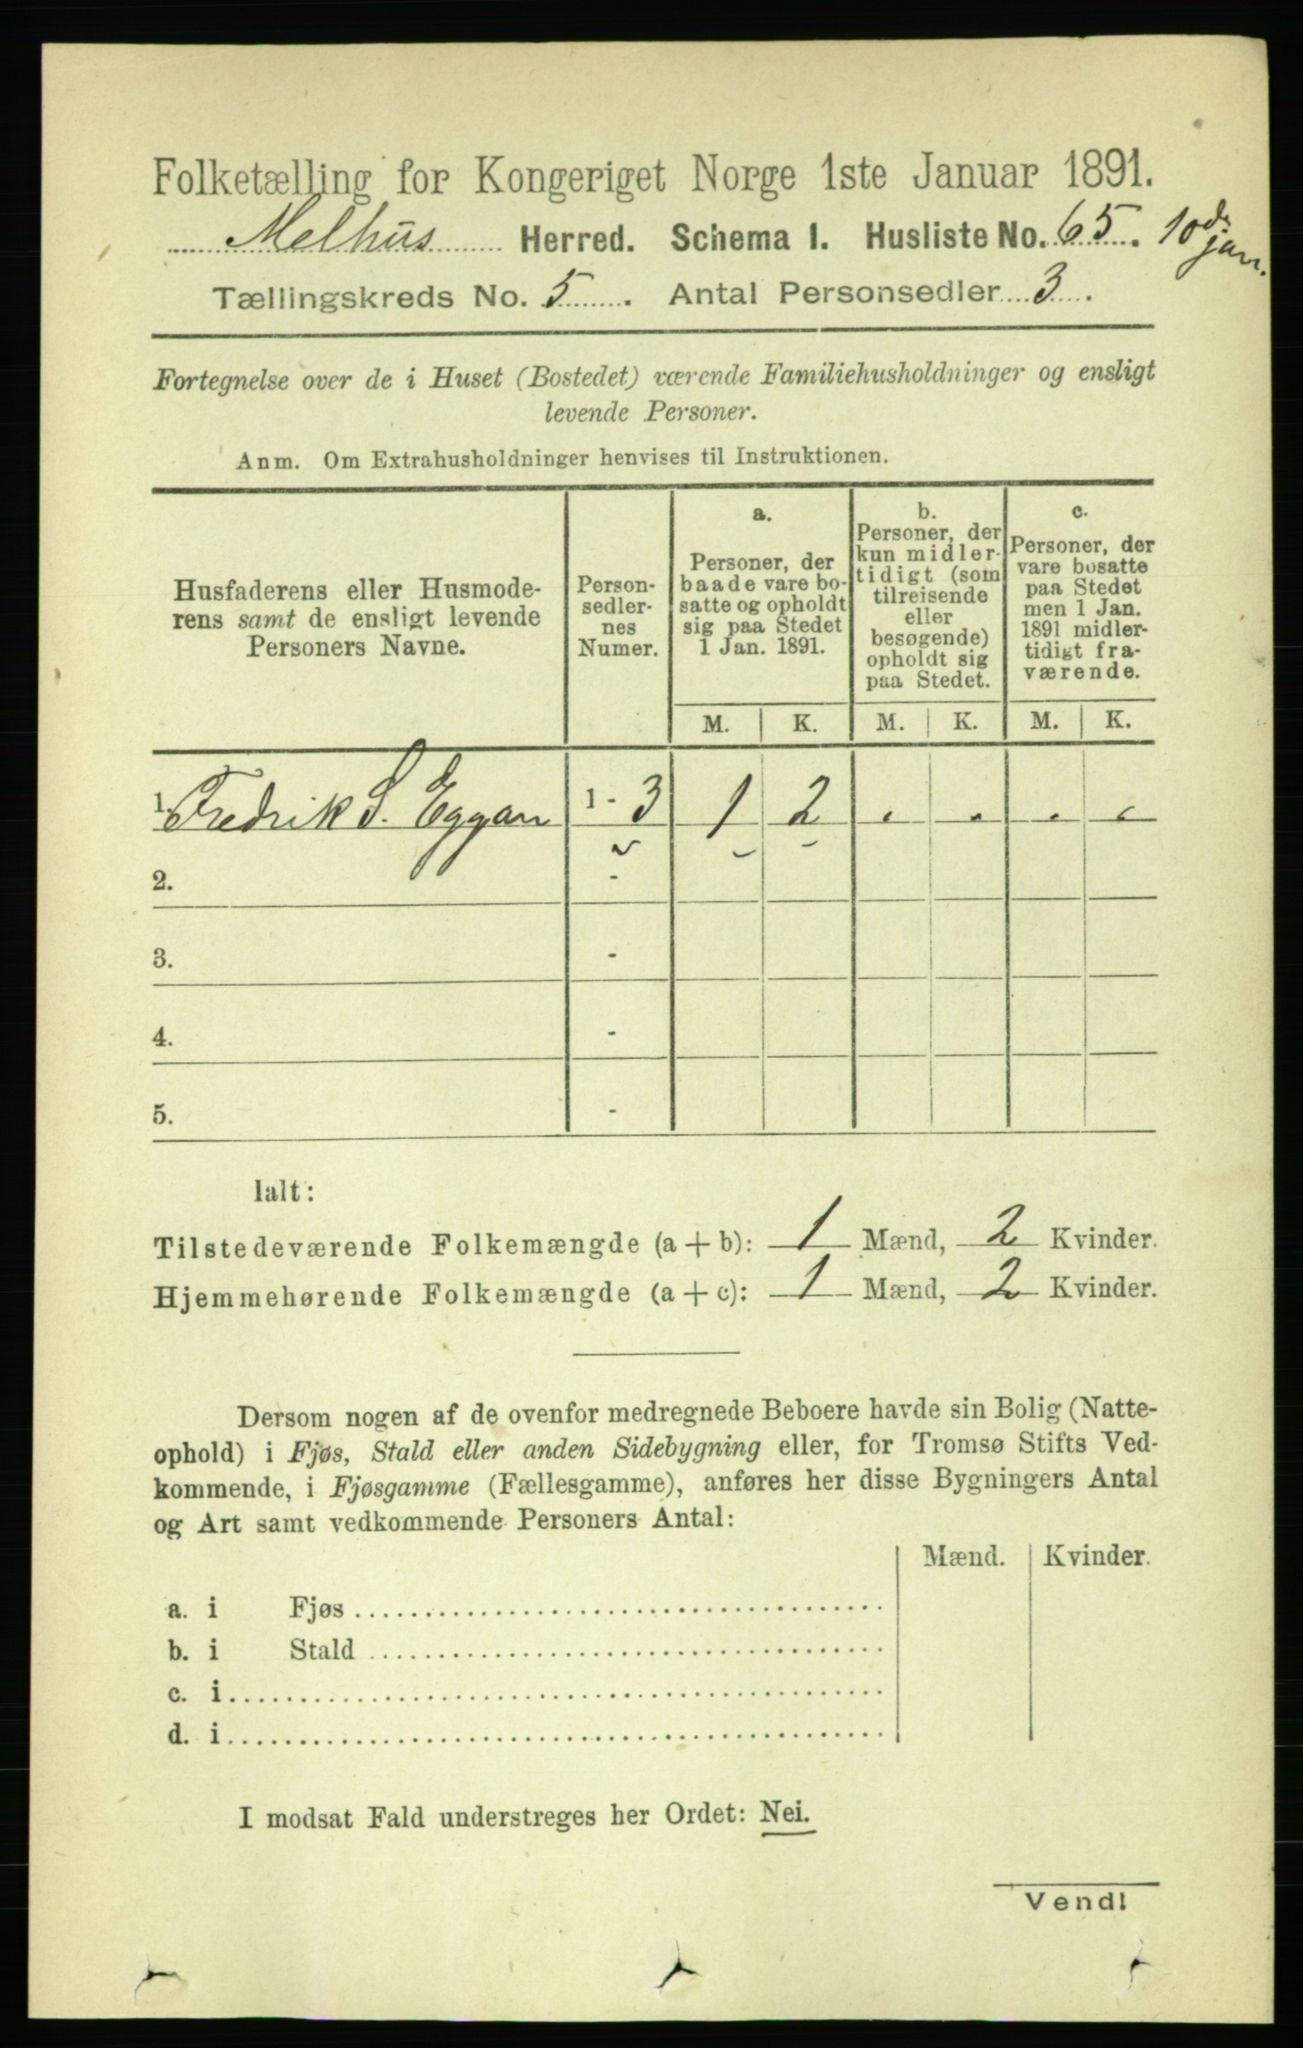 Folketælling for Kongeriget Norge 1ste Januar 1891.
Melhus Herred. Schema 1. Husliste No. 65. 10de jan.
Tællingskreds No. 5. Antal Personsedler 3.
Fortegnelse over de i Huset (Bostedet) værende Familiehusholdninger og ensligt
levende Personer.
Anm. Om Extrahusholdninger henvises til Instruktionen.
Husfaderens eller Husmode-
rens samt de ensligt levende
Personers Navne.
Person-
sedler-
nes
Numer.
a.
Personer, der
baade vare bo-
satte og opholdt
sig paa Stedet
1 Jan. 1891.
b.
Personer, der
kun midler-
tidigt (som
tilreisende
eller
besøgende)
opholdt sig
paa Stedet.
c.
Personer, der
vare bosatte
paa Stedet
men 1 Jan.
1891 midler-
tidigt fra-
værende.
M. K. M. K. M. K.
1. Fredrik S. Eggan 1 - 3 1 2 . . . .
2. -
3. -
4. -
5. -
Ialt:
Tilstedeværende Folkemængde (a + b): 1 Mænd, 2 Kvinder.
Hjemmehørende Folkemængde (a + c): 1 Mænd, 2 Kvinder.
Dersom nogen af de ovenfor medregnede Beboere havde sin Bolig (Natte-
ophold) i Fjøs, Stald eller anden Sidebygning eller, for Tromsø Stifts Ved-
kommende, i Fjøsgamme (Fællesgamme), anføres her disse Bygningers Antal
og Art samt vedkommende Personers Antal:
Mænd. Kvinder.
a. i Fjøs
b. i Stald
c. i
d. i
I modsat Fald understreges her Ordet: Nei.
Vend!